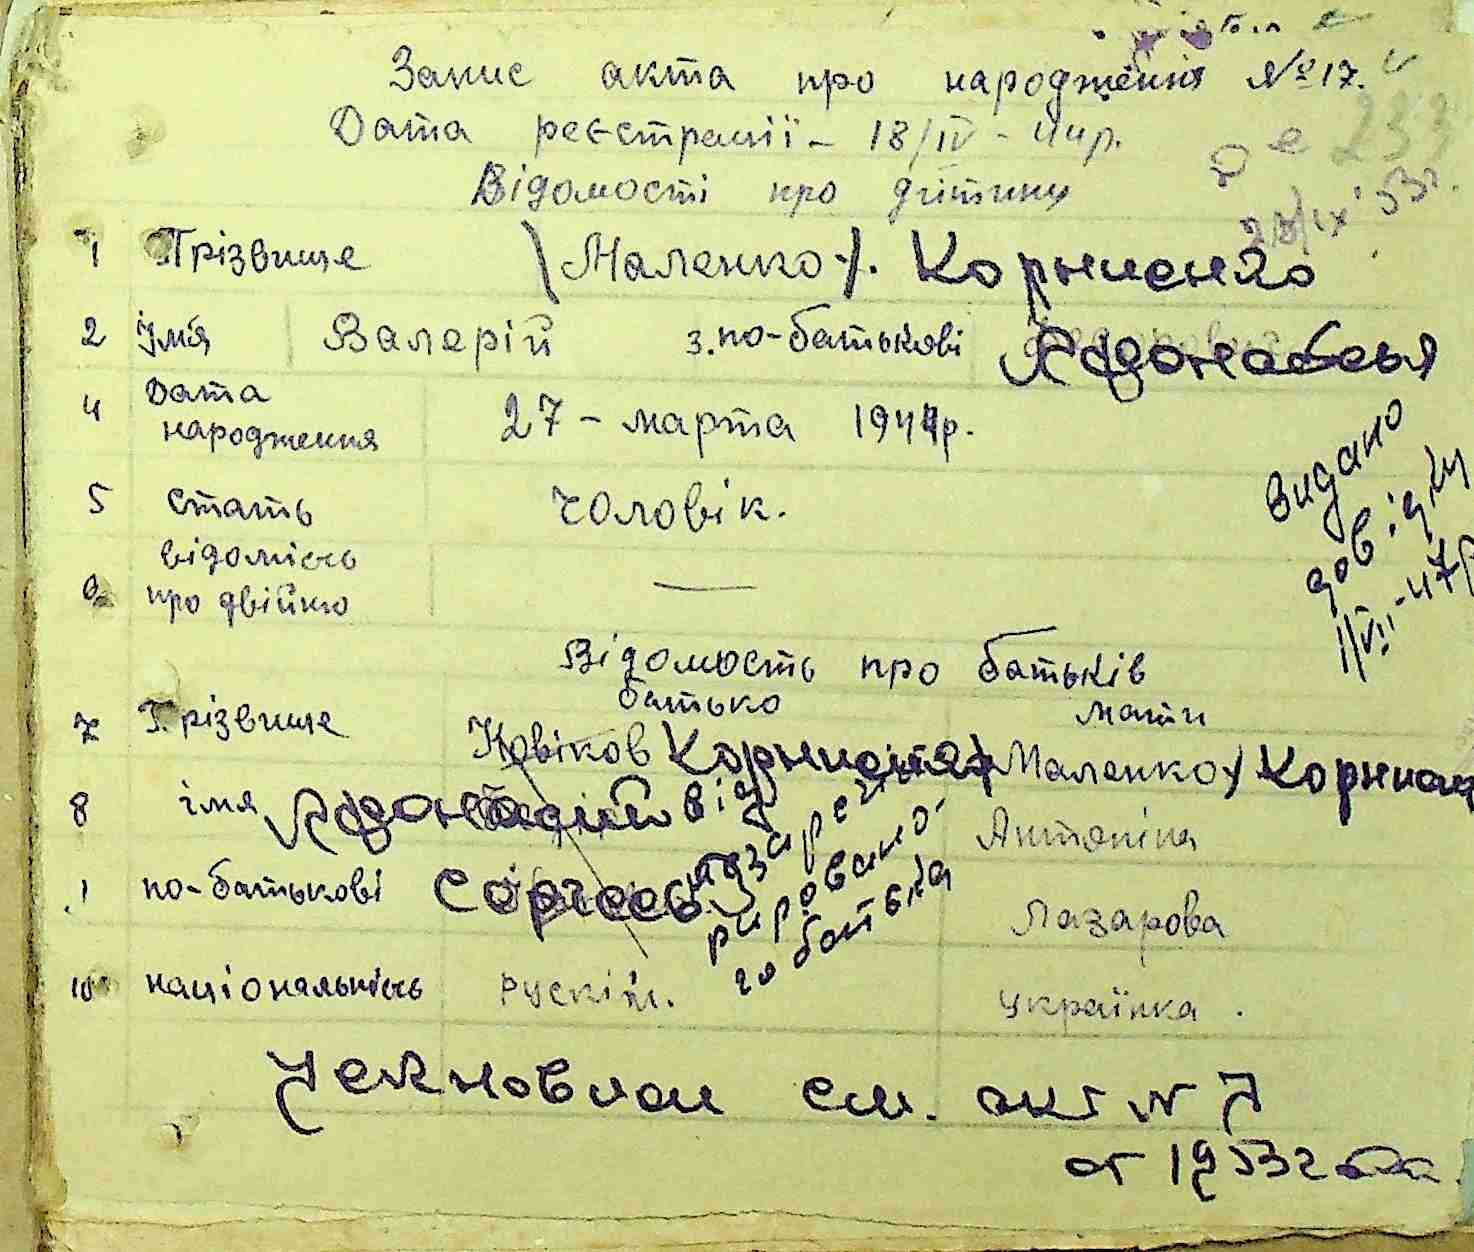 Запис акта про народження №17.
Дата реєстрації - 18/IV - 44р.
233
Відомості про дитину
27/IX 53г.
1 Прізвище \(Маленко\). Корниенко
2 імя Валерій 3. по-батькові
4 Дата народження 27 - марта 1944р.
5 стать Чоловік.
відомість
6 про двійню —
Видано
довідку
1/VII-47р
Відомость про батьків
батько мати
7 Прізвище Новіков Корниенко (Маленко) Корниен
8 імя Антоніна
по-батькові Сергеевич Лазарова
10 національність рускій. українка.
від
батька
см. акт № 7
от 1953 года.